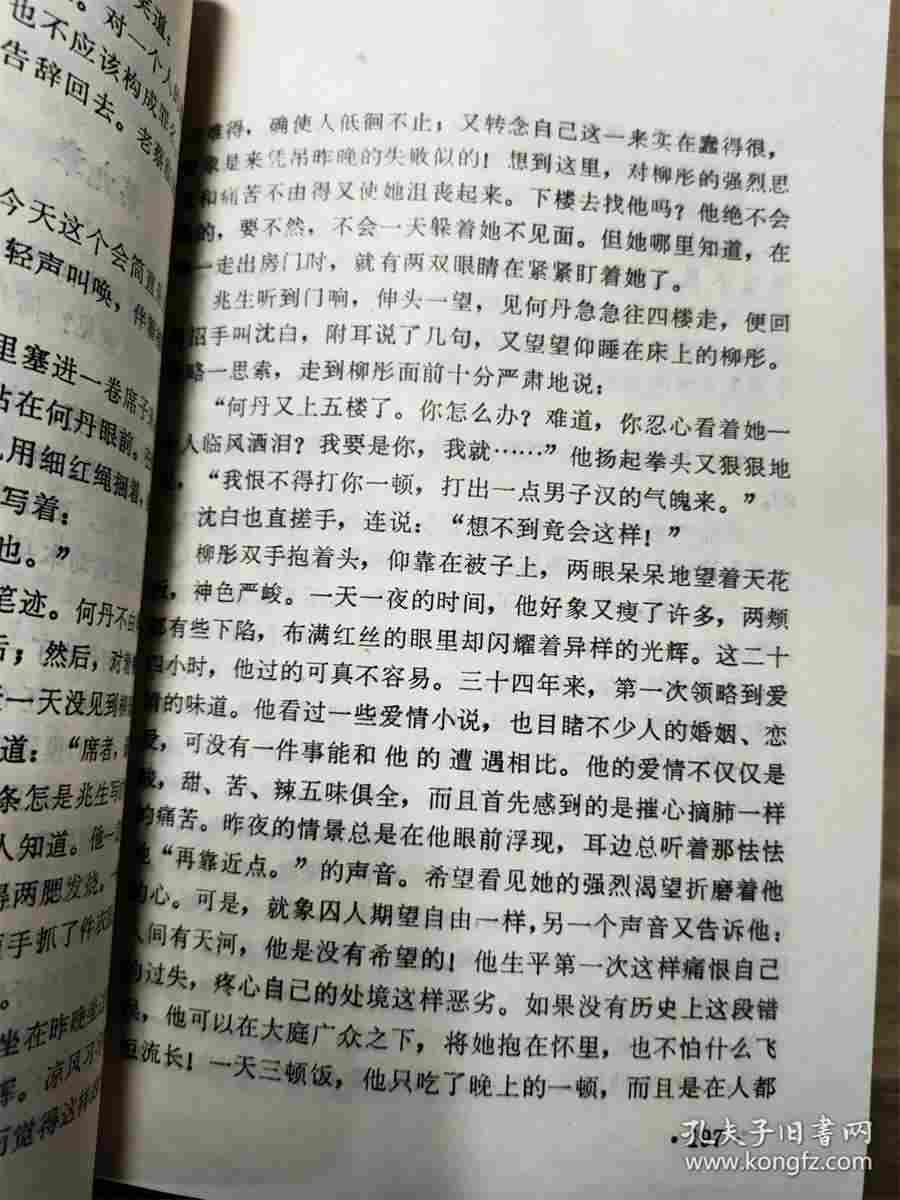 笑道：
。对一个人的
也不应该构成罪么
告辞回去。老蔡
今天这个会简直
轻声叫唤，伴
里塞进一卷席子
站在何丹眼前。
用细红绳捆着，
写着：
也。”
笔迹。何丹不由
后；然后，对着
近一天没见到柳
道：“席者，
条怎是兆生写
人知道。他一
得两腮发烧。
手抓了件衣
。
坐在昨晚坐
军。凉风习
而觉得这样
难得，确使人低徊不止；又转念自己这一来实在蠢得很，
象是来凭吊昨晚的失败似的！想到这里，对柳彤的强烈思
和痛苦不由得又使她沮丧起来。下楼去找他吗？他绝不会
的，要不然，不会一天躲着她不见面。但她哪里知道，在
一走出房门时，就有两双眼睛在紧紧盯着她了。
兆生听到门响，伸头一望，见何丹急急往四楼走，便回
招手叫沈白，附耳说了几句，又望望仰睡在床上的柳彤。
略一思索，走到柳彤面前十分严肃地说：
“何丹又上五楼了。你怎么办？难道，你忍心看着她一
人临风洒泪？我要是你，我就……”他扬起拳头又狠狠地
，“我恨不得打你一顿，打出一点男子汉的气魄来。”
沈白也直搓手，连说：“想不到竟会这样！”
柳彤双手抱着头，仰靠在被子上，两眼呆呆地望着天花
，神色严峻。一天一夜的时间，他好象又瘦了许多，两颊
都有些下陷，布满红丝的眼里却闪耀着异样的光辉。这二十
四小时，他过的可真不容易。三十四年来，第一次领略到爱
情的味道。他看过一些爱情小说，也目睹不少人的婚姻、恋
爱，可没有一件事能和他的遭遇相比。他的爱情不仅仅是
酸，甜、苦、辣五味俱全，而且首先感到的是摧心摘肺一样
的痛苦。昨夜的情景总是在他眼前浮现，耳边总听着那怯怯
地“再靠近点。”的声音。希望看见她的强烈渴望折磨着他
的心。可是，就象囚人期望自由一样，另一个声音又告诉他：
人间有天河，他是没有希望的！他生平第一次这样痛恨自己
的过失，疼心自己的处境这样恶劣。如果没有历史上这段错
误，他可以在大庭广众之下，将她抱在怀里，也不怕什么飞
短流长！一天三顿饭，他只吃了晚上的一顿，而且是在人都
·197
孔夫子旧书网
www.kongfz.com